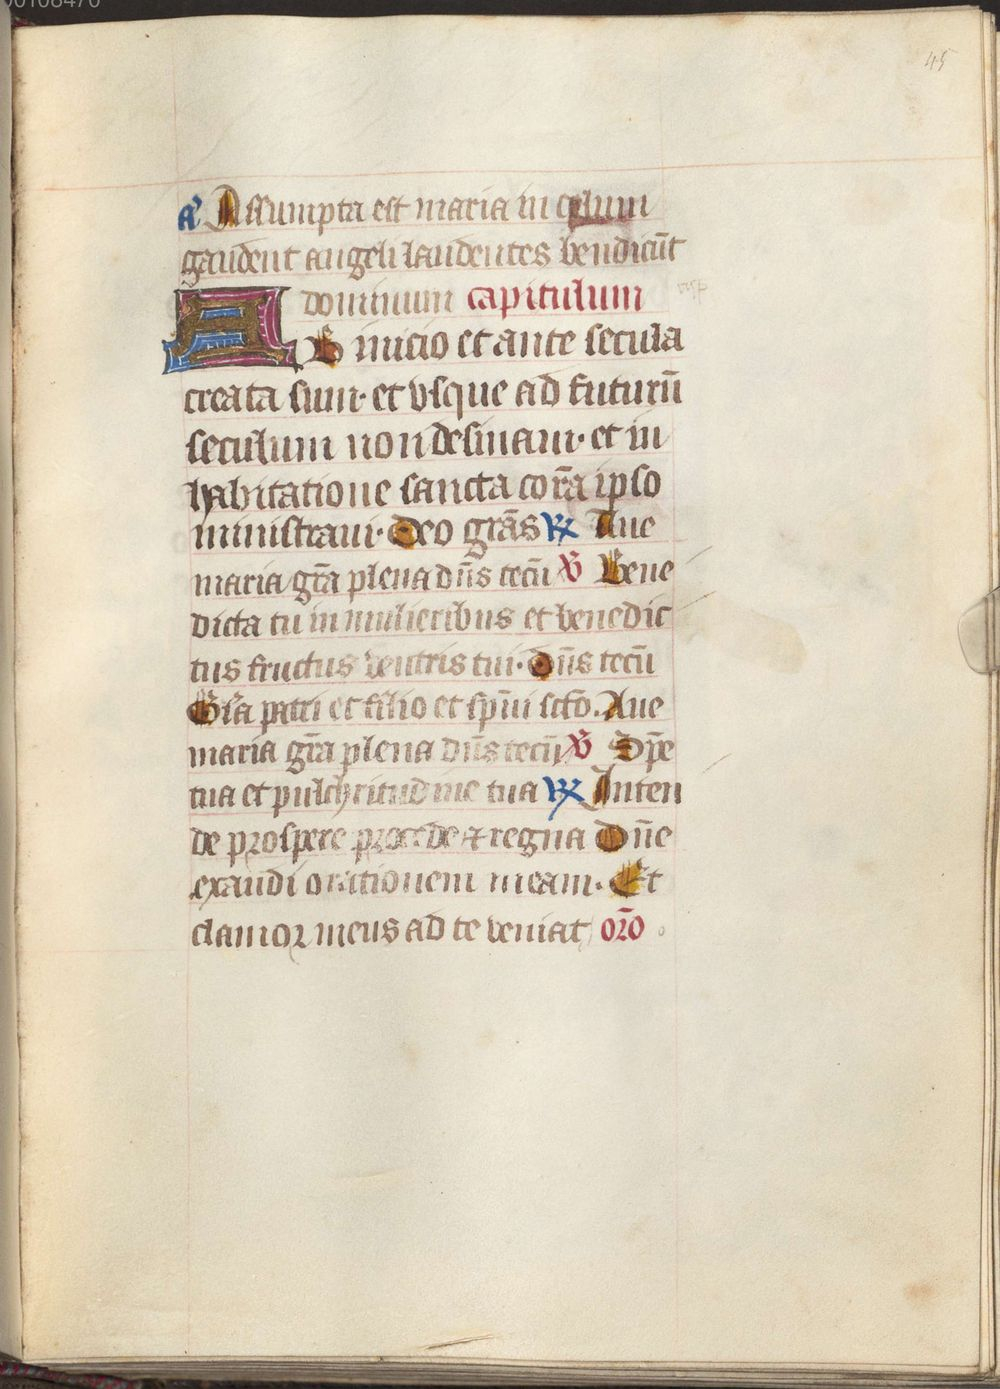 00108470
45
a᷑ Assumpta est maria in celum
gaudent angeli laudentes bendicūt
dominum capitulum
AB inicio et ante secula
creata sum· et vsque ad futurū
seculum non desinam· et in
habitatione sancta corā ipso
ministraui· Deo grās ℟ Aue
maria grā plena dn̄s tecū ℣ Bene
dicta tu in mulieribus et benedic
tus fructus ventris tui· Dn̄s tecū
Glīa patri et filio et sp̄ui scō. Aue
maria grā plena dn̄s tecū ℣ Sp̄e
tua et pulchritudine tua ℟ Inten
de prospere procede ⁊ regna Dn̄e
exaudi orationem meam· Et
clamor meus ad te veniat or̄o